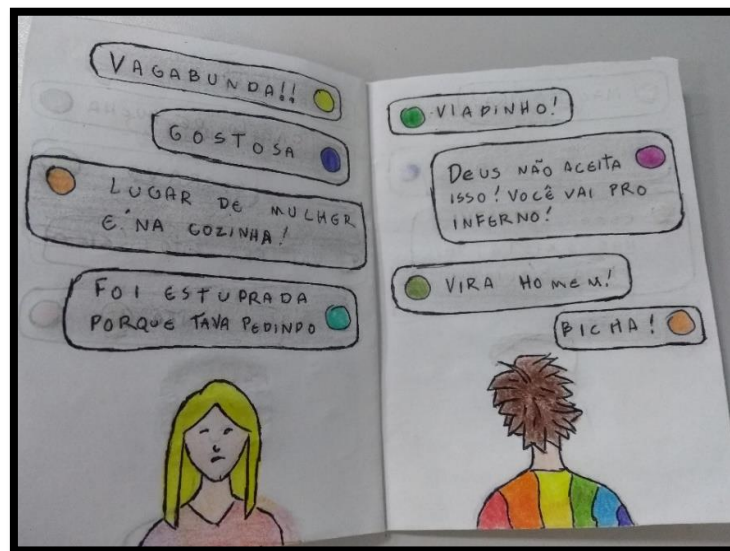 VAGABUNDA!!
GOSTOSA
LUGAR DE MULHER
É NA COZINHA!
FOI ESTUPRADA
PORQUE TAVA PEDINDO
VIADINHO!
DEUS NÃO ACEITA
ISSO! VOCÊ VAI PRO
INFERNO!
VIRA HOMEM!
BICHA!